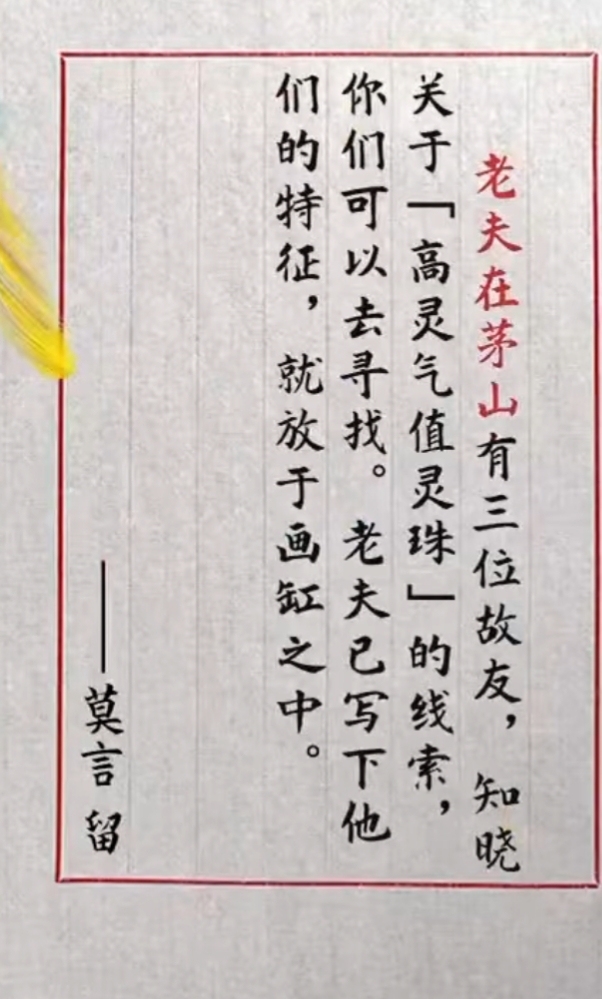 老夫在茅山有三位故友，知晓
关于「高灵气值灵珠」的线索，
你们可以去寻找。老夫已写下他
们的特征，就放于画缸之中。
——莫言 留